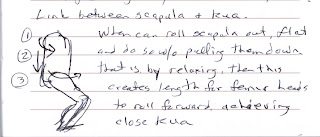 Link between scapula & kua.
① When can roll scapula out, flat
② and do so w/o pulling them down
③ that is, by relaxing, then this
creates length for femur heads
to roll forward, achieving
close kua